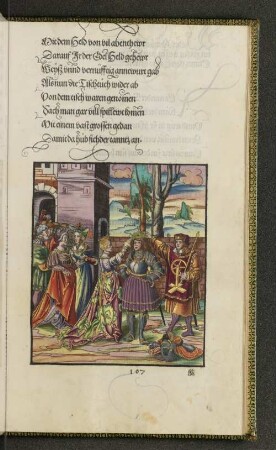 Mit dem Held von vil abentheẅr
Darauf Jr der Edl Held geheẅr
Weyß vnnd vernufftig annttwurt gab
Als nun die Tischtuch wider ab
Von dem tisch waren genomen
Sach man gar vill spilleẅt komen
Mit einem vast grossen gedan
Damit da hub sich der tanntz an
107